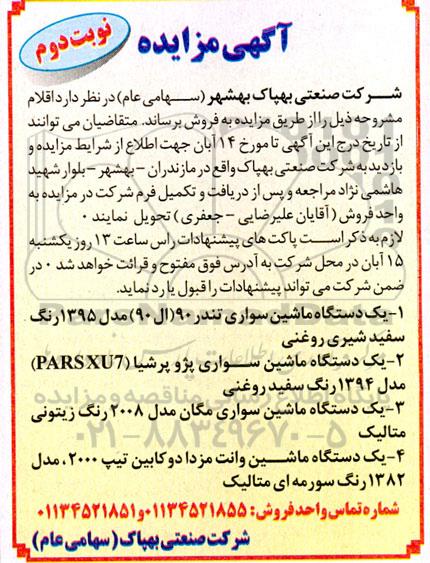 آگهی مزایده
نوبت دوم
شرکت صنعتی بهپاک بهشهر (سهامی عام) در نظر دارد اقلام
مشروحه ذیل را از طریق مزایده به فروش برساند. متقاضیان می توانند
از تاریخ درج این آگهی تا مورخ ۱۴ آبان جهت اطلاع از شرایط مزایده و
بازدید به شرکت صنعتی بهپاک واقع در مازندران - بهشهر - بلوار شهید
هاشمی نژاد مراجعه و پس از دریافت و تکمیل فرم شرکت در مزایده به
واحد فروش (آقایان علیرضایی - جعفری) تحویل نمایند ۰
لازم به ذکر است پاکت های پیشنهادات راس ساعت ۱۳ روز یکشنبه
۱۵ آبان در محل شرکت به آدرس فوق مفتوح و قرائت خواهد شد ۰ در
ضمن شرکت می تواند پیشنهادات را قبول یا رد نماید.
۱- یک دستگاه ماشین سواری تندر ۹۰ (ال ۹۰) مدل ۱۳۹۵ رنگ
سفید شیری روغنی
۲- یک دستگاه ماشین سواری پژو پرشیا (PARS XU7)
مدل ۱۳۹۴ رنگ سفید روغنی
۳- یک دستگاه ماشین سواری مگان مدل ۲۰۰۸ رنگ زیتونی
متالیک
۴- یک دستگاه ماشین وانت مزدا دو کابین تیپ ۲۰۰۰، مدل
۱۳۸۲ رنگ سورمه ای متالیک
شماره تماس واحد فروش: ۰۱۱۳۴۵۲۱۸۵۵ و ۰۱۱۳۴۵۲۱۸۵۱
شرکت صنعتی بهپاک (سهامی عام)
۰۲۱-۸۸۳۴۹۶۷۰-۵